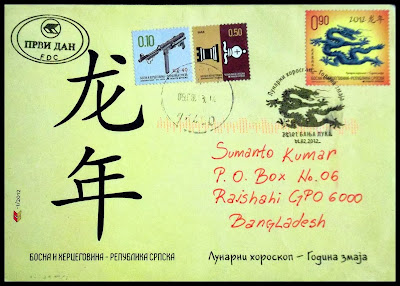 ПРВИ ДАН
FDC
0.10
0.50
0.90
2012 龙年
БОСНА И ХЕРЦЕГОВИНА - РЕПУБЛИКА СРПСКА
龙
年
Лунарни хороскоп – Година змаја
78101 БАЊА ЛУКА
Sumanto Kumar
P. O. Box No. 06
Rajshahi GPO 6000
Bangladesh
1/2012
БОСНА И ХЕРЦЕГОВИНА - РЕПУБЛИКА СРПСКА
Лунарни хороскоп – Година змаја